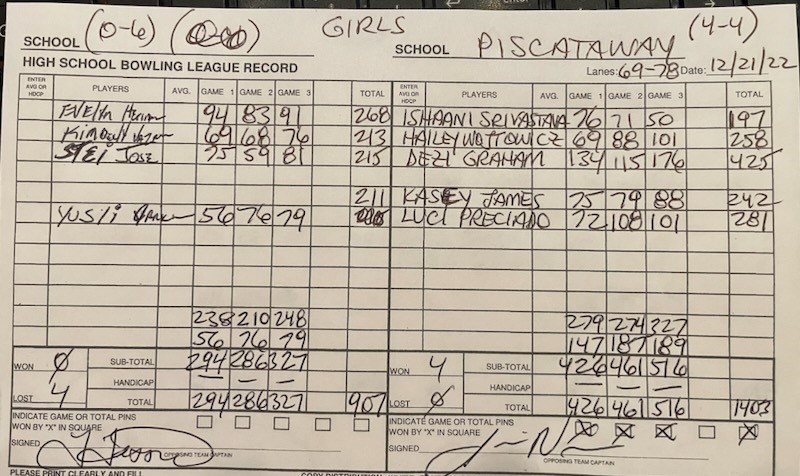 GIRLS
SCHOOL (0-6)
SCHOOL PISCATAWAY (4-4)
HIGH SCHOOL BOWLING LEAGUE RECORD
Lanes: 69-78 Date: 12/21/22
ENTER AVG OR HDCP PLAYERS AVG. GAME 1 GAME 2 GAME 3 TOTAL
ENTER AVG OR HDCP PLAYERS AVG. GAME 1 GAME 2 GAME 3 TOTAL
EVELYN 94 83 91 268
ISHAANI SRIVASTAVA 76 71 50 197
69 68 76 213
HAILEY WOTTOWICZ 69 88 101 258
JOSE 75 59 81 215
DEZI GRAHAM 134 115 176 425
211
KASEY JAMES 75 79 88 242
56 76 79
LUCI PRECIADO 72 108 101 281
238 210 248
279 274 327
56 76 79
147 187 189
WON 0 SUB-TOTAL 294 286 327
WON 4 SUB-TOTAL 426 461 516
HANDICAP — — —
HANDICAP — — —
LOST 4 TOTAL 294 286 327 907
LOST 0 TOTAL 426 461 516 1403
INDICATE GAME OR TOTAL PINS
WON BY "X" IN SQUARE
INDICATE GAME OR TOTAL PINS
WON BY "X" IN SQUARE X X X X
SIGNED
OPPOSING TEAM CAPTAIN
SIGNED
OPPOSING TEAM CAPTAIN
PLEASE PRINT CLEARLY AND